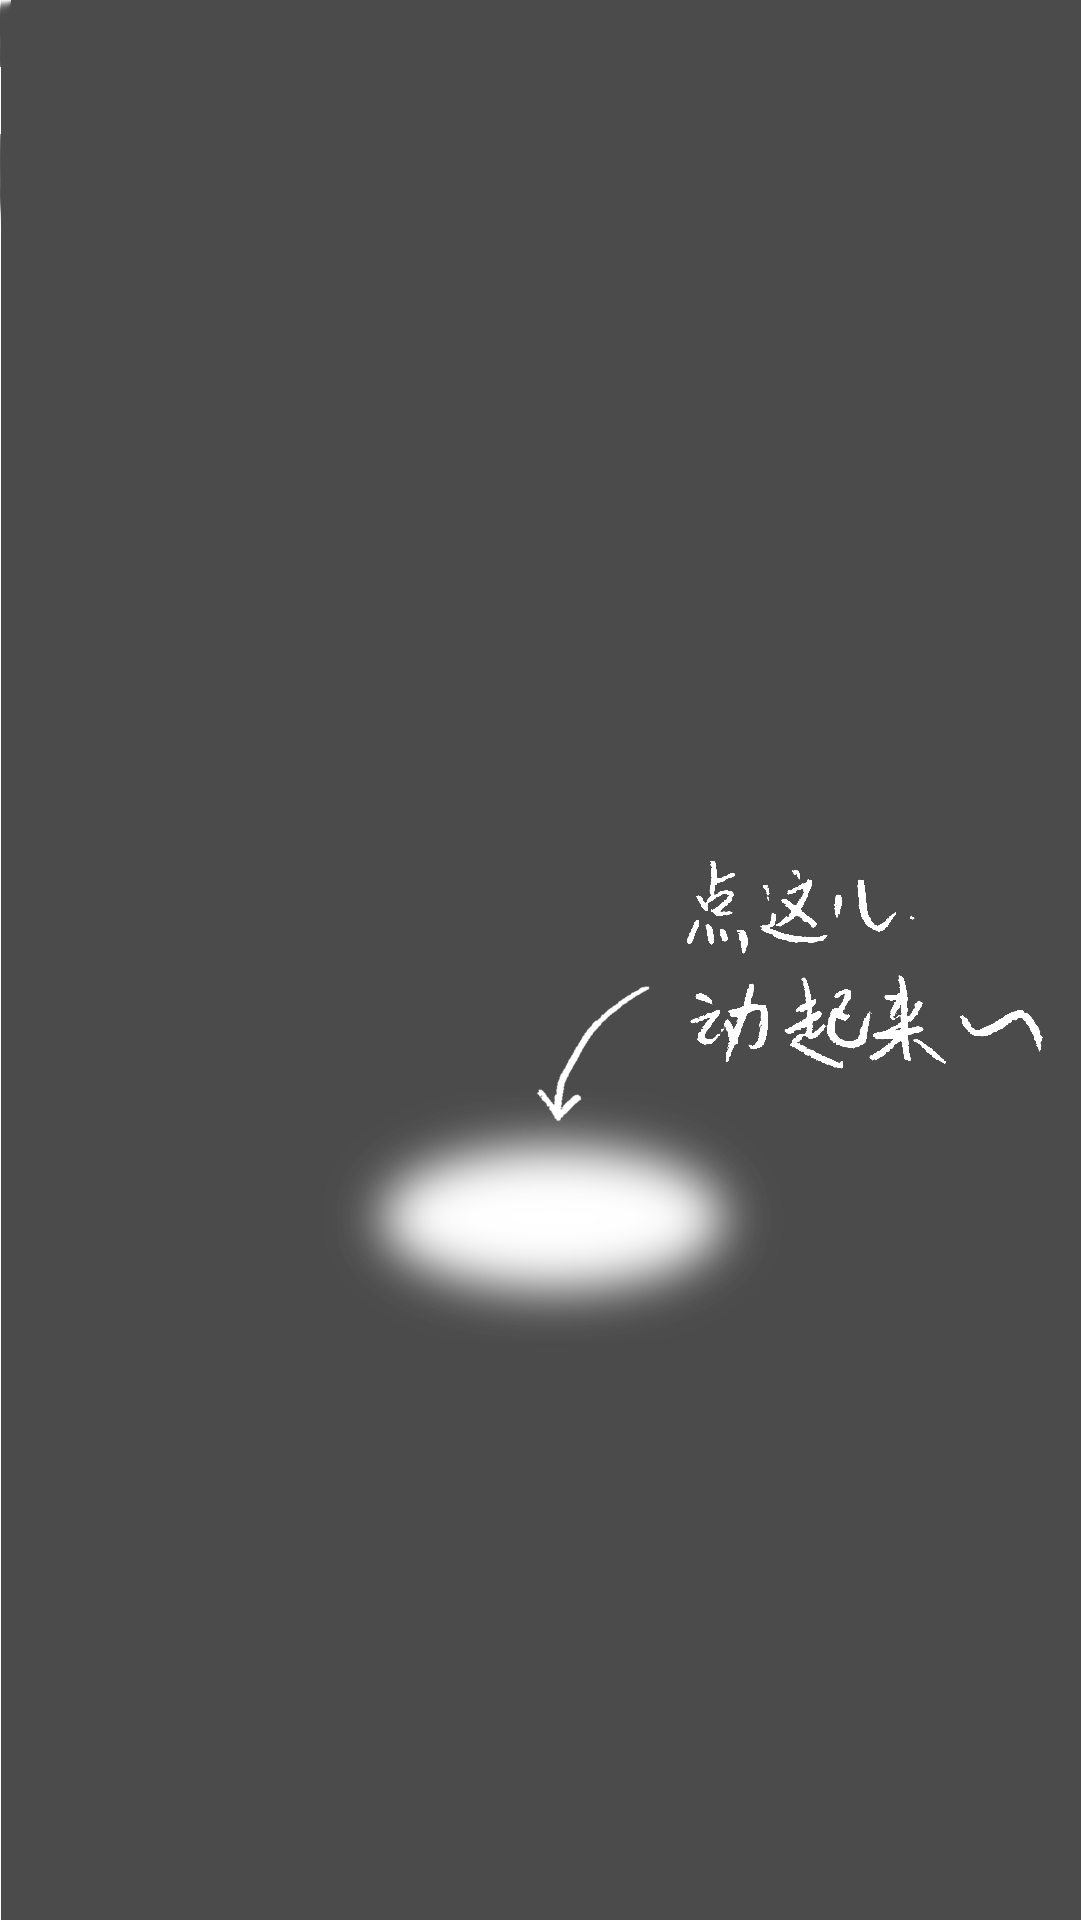 点这儿
动起来~